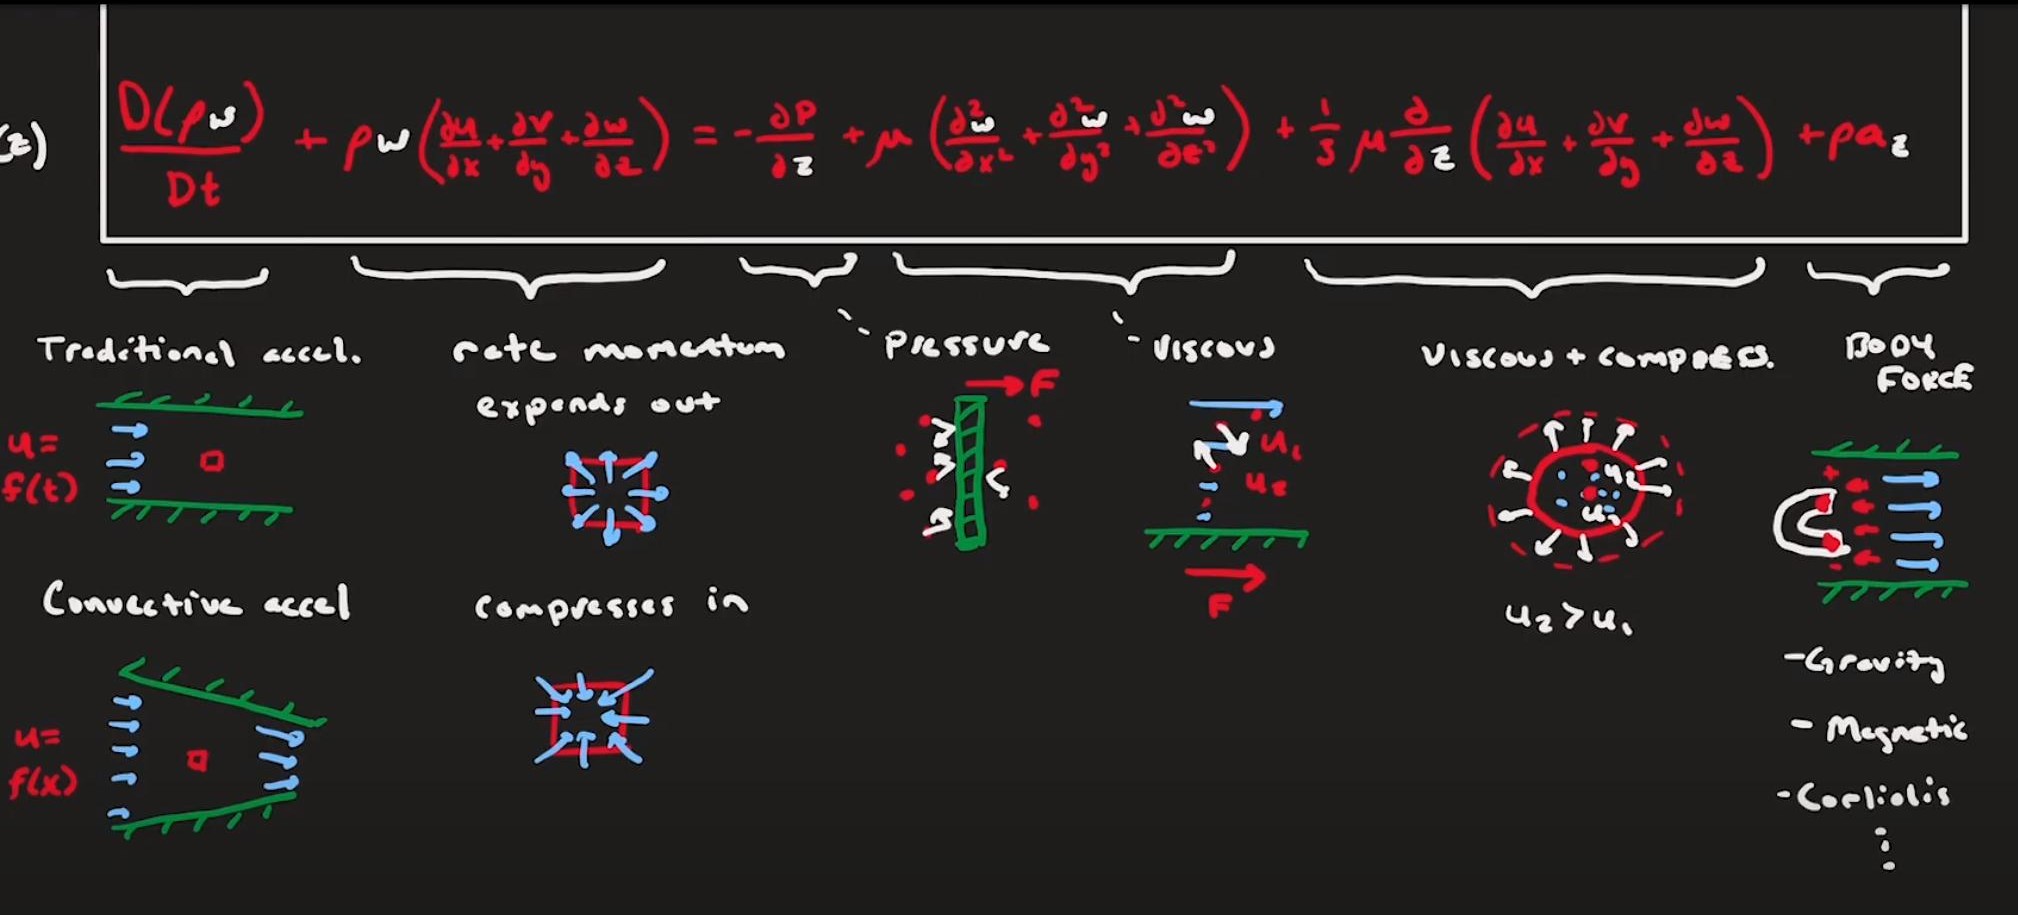 (z) D(ρw)/Dt + ρw(∂u/∂x + ∂v/∂y + ∂w/∂z) = -∂P/∂z + μ(∂²w/∂x² + ∂²w/∂y² + ∂²w/∂z²) + 1/3 μ ∂/∂z (∂u/∂x + ∂v/∂y + ∂w/∂z) + ρa_z
Traditional accel.
u=
f(t)
Convective accel
u=
f(x)
rate momentum
expands out
compresses in
- Pressure
F
- Viscous
u₁
u₂
F
Viscous + compress.
u₂
u₁
u₂ > u₁
BODY
FORCE
+
-
- Gravity
- Magnetic
- Corliolis